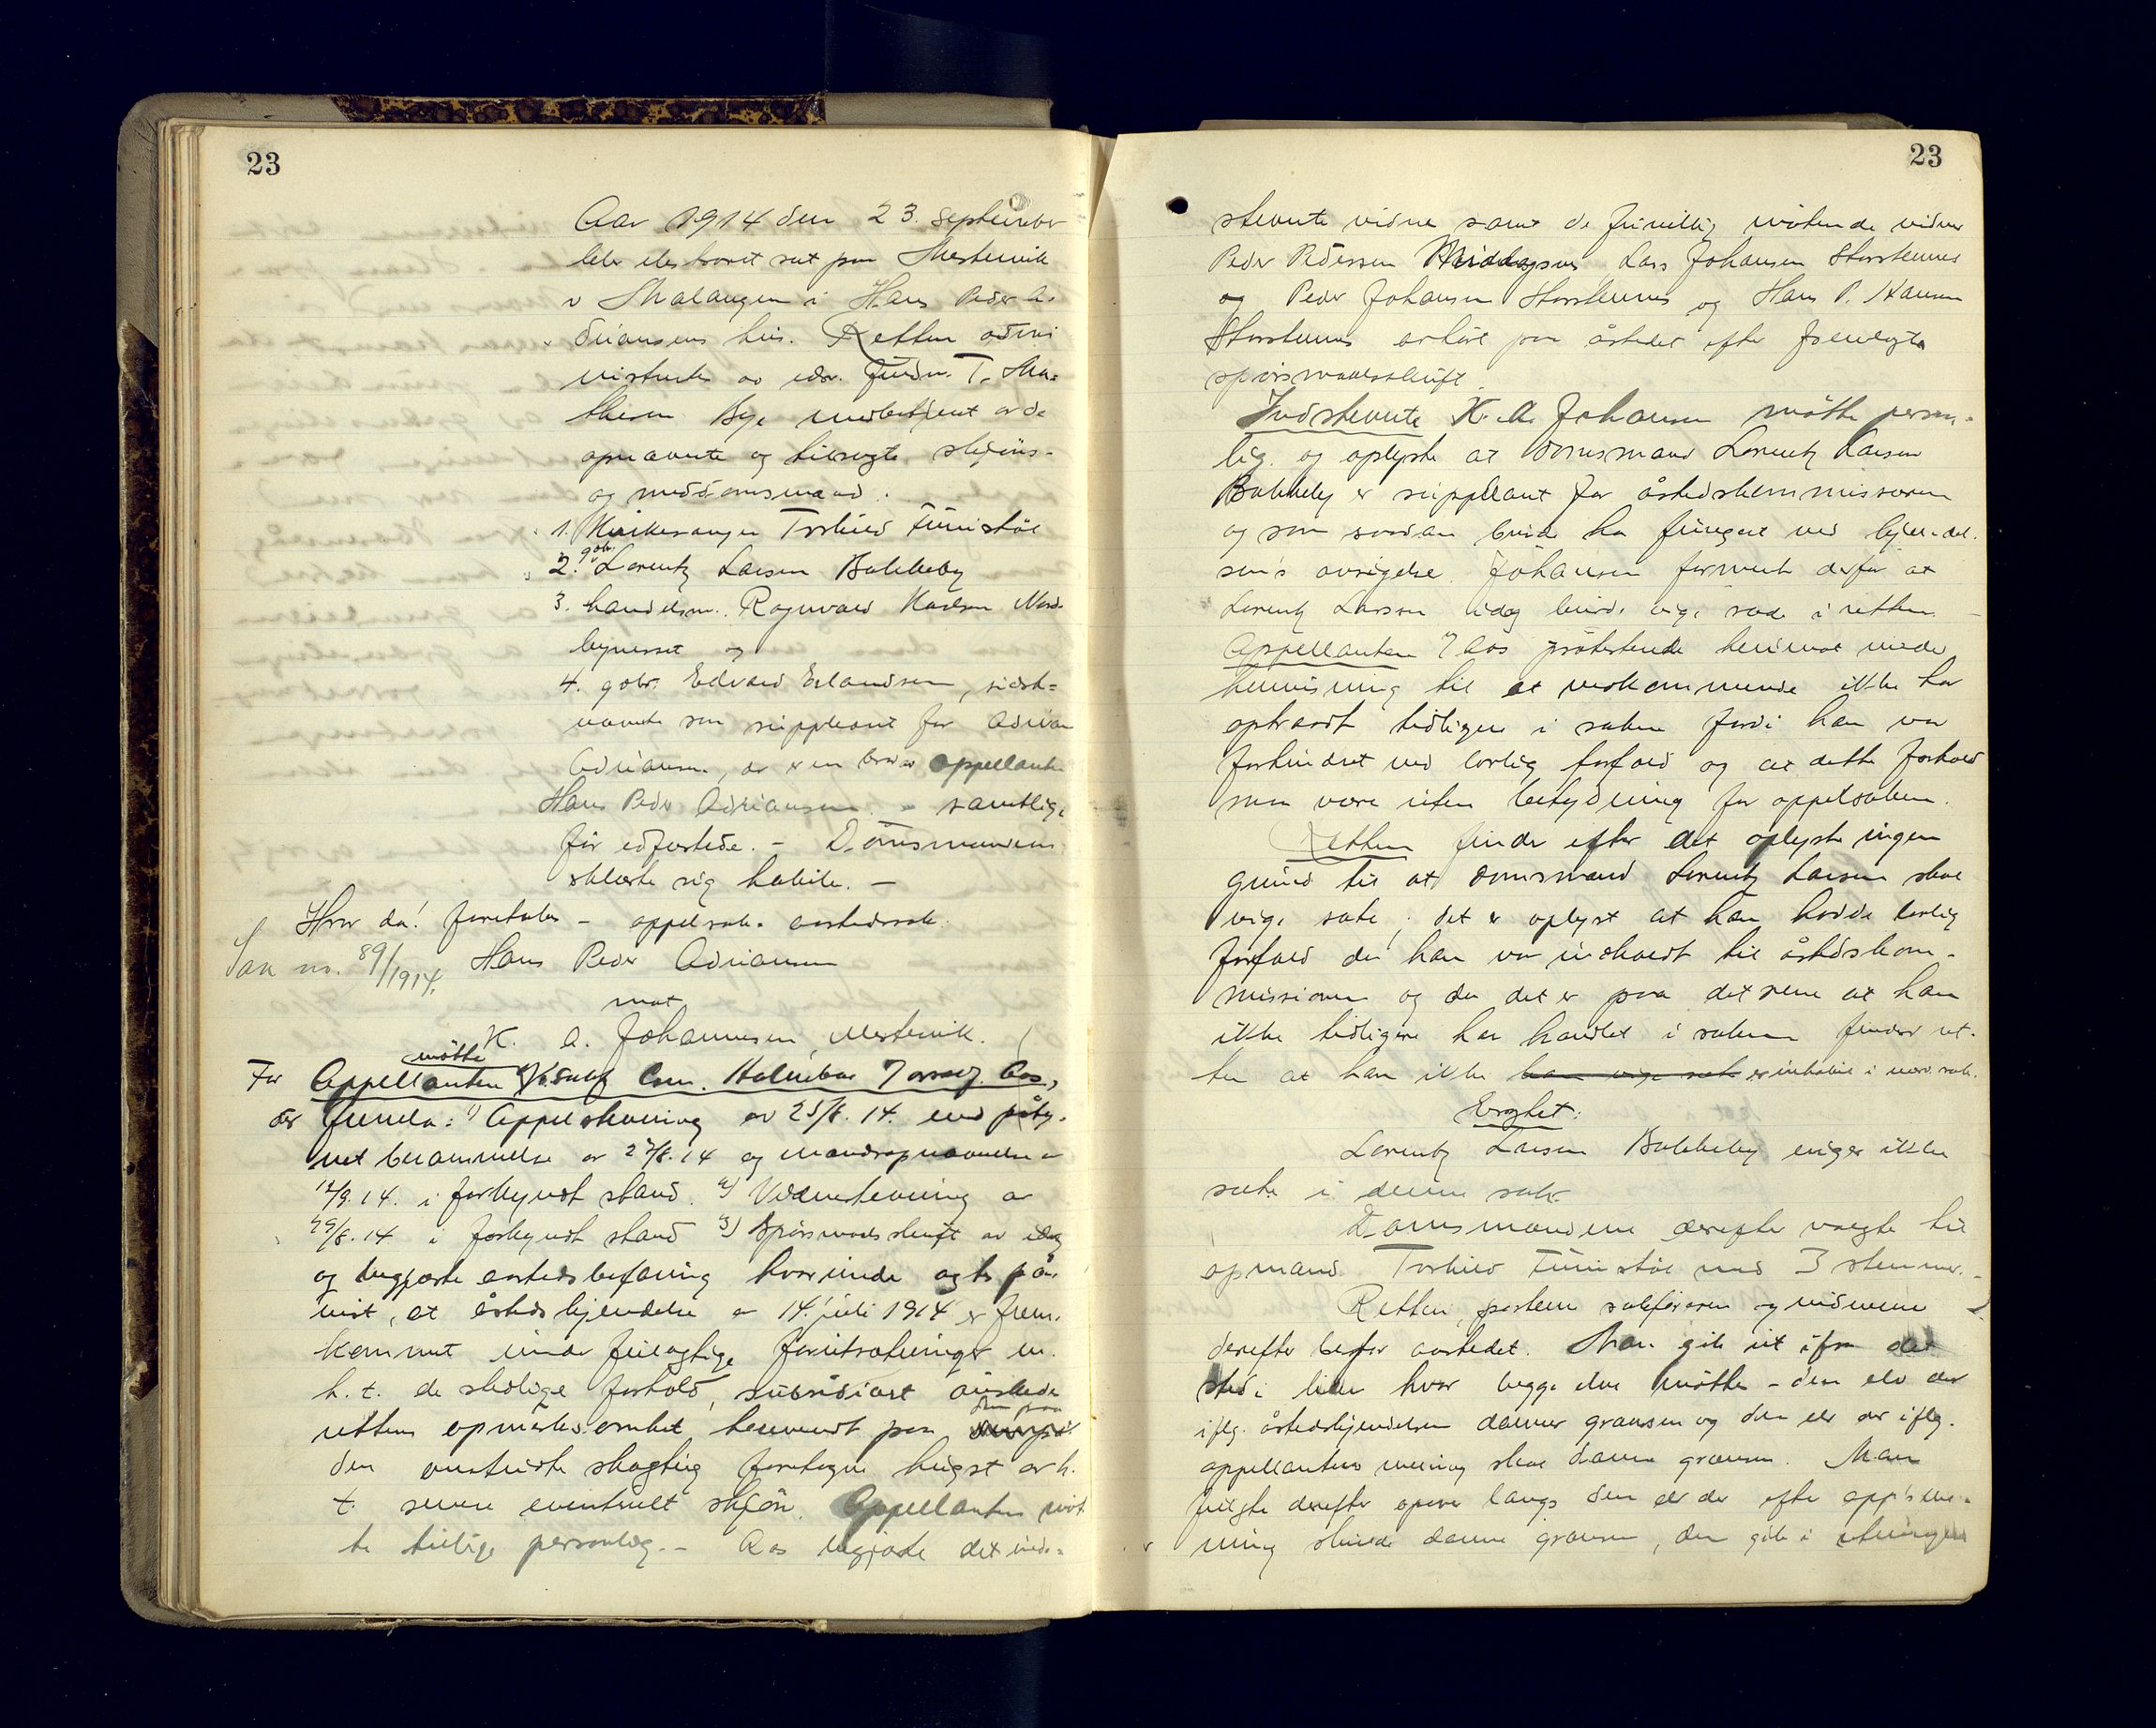 23
Aar 1914 den 23. September
blev ekstraret sat paa Mestervik
i Malangen i Hans Peder A-
driansens hus. Retten admi
nistreredes av edsv. fuldm. T. Ma-
thisen Bye medbetjent av de
opnævnte og tilsagte skjøns-
og meddomsmænd.
1. Kirkesanger Torkild Finnstøl
2. gbr. Lorentz Larsen Bakkeby
3. handelsm. Ragnvald Karlsen Nord-
bynesset og
4. gbr. Edvard Erlandsen, sidst-
nævnte som suppleant for Adrian
Adriansen, der er en bror av appellanten
Hans Peder Adriansen. - samtlige
før edfæstede. - Domsmændene
erklærte sig habile. -
Hvor da! foretokes - appelsak - aastedssak
Sak no. 89/1914. Hans Peder Adriansen
mot
K. A. Johannsen, Mestervik.
For Appellanten møtte Com. Halnebos v/ Aas,
der fremla: 1) Appelstevning av 25/8. 14. med påteg-
net berammelse av 27/8. 14 og mandsopnævnelse av
12/9. 14. i forkyndt stand. 2) Vidnestevning av
29/8. 14 i forkyndt stand 3) Spørsmaalsskrift av idag
og begjærte aastedsbefaring hvorunder agtes på-
vist, at åstedskjendelse av 14. juli 1914 er frem-
kommet under feilagtige forutsætninger m.
h. t. de stedlige forhold, subsidiært ønskede
rettens opmerksomhet henvendt paa den paa
den omstridte skogteig foretagne hugst av h.
t. senere eventuelt skjøn. Appellanten møt
te tillige personlig. - Aas begjærte det ind-
23
stevnte vidne samt de frivillig møtende vidner
Peder Pedersen Middagsnes Lars Johansen Storsteinnes
og Peder Johansen Storsteinnes og Hans P. Hansen
Storsteinnes avhørt paa åstedet efter fremlagte
spørsmaalsskrift.
Indstevnte K. A. Johansen møtte person-
lig og oplyste at domsmand Lorentz Larsen
Bakkeby er suppleant for åstedskommissæren
og som saadan burde ha fungert ved kjendel-
sens avsigelse. Johansen formente derfor at
Lorentz Larsen idag burde vige sæde i retten. -
Appellanten v/ Aas protesterede herimot under
henvisning til at vedkommende ikke har
optraadt tidligere i saken fordi han var
forhindret ved lovlig forfald og at dette forhold
maa være uten betydning for appelsaken.
Retten finder efter det oplyste ingen
grund til at domsmand Lorentz Larsen skal
vige sæte; det er oplyst at han hadde lovlig
forfald da han var indkaldt til åstedskom-
missionen og da det er paa det rene at han
ikke tidligere har handlet i saken finder ret-
ten at han ikke er inhabil i nærv. sak.
Eragtet:
Lorentz Larsen Bakkeby viger ikke
sæte i denne sak.
Domsmændene derefter valgte til
opmand Torkild Finnstøl med 3 stemmer. -
Retten, partene sakføreren og vidnerne
derefter befor aastedet. Man gik ut ifra det
sted i lien hvor begge elve møttes - den elv der
iflg. åstedskjendelsen danner grænsen og den elv der iflg.
appellantens mening skal danne grænsen. Man
fulgte derefter opover langs den elv der efter app's me-
ning skulde danne grænsen, den gik i retningen